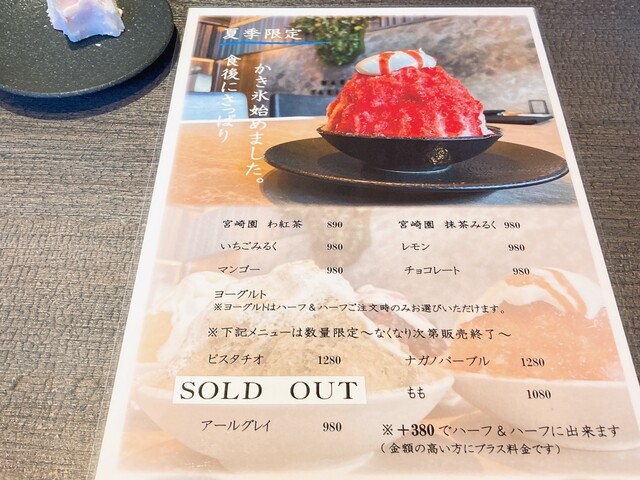 夏季限定
かき氷始めました。
食後にさっぱり
宮崎園 わ紅茶 890
宮崎園 抹茶みるく 980
いちごみるく 980
レモン 980
マンゴー 980
チョコレート 980
ヨーグルト
※ヨーグルトはハーフ&ハーフご注文時のみお選びいただけます。
※下記メニューは数量限定～なくなり次第販売終了～
ピスタチオ 1280
ナガノパープル 1280
SOLD OUT
もも 1080
アールグレイ 980
※+380でハーフ&ハーフに出来ます
(金額の高い方にプラス料金です)